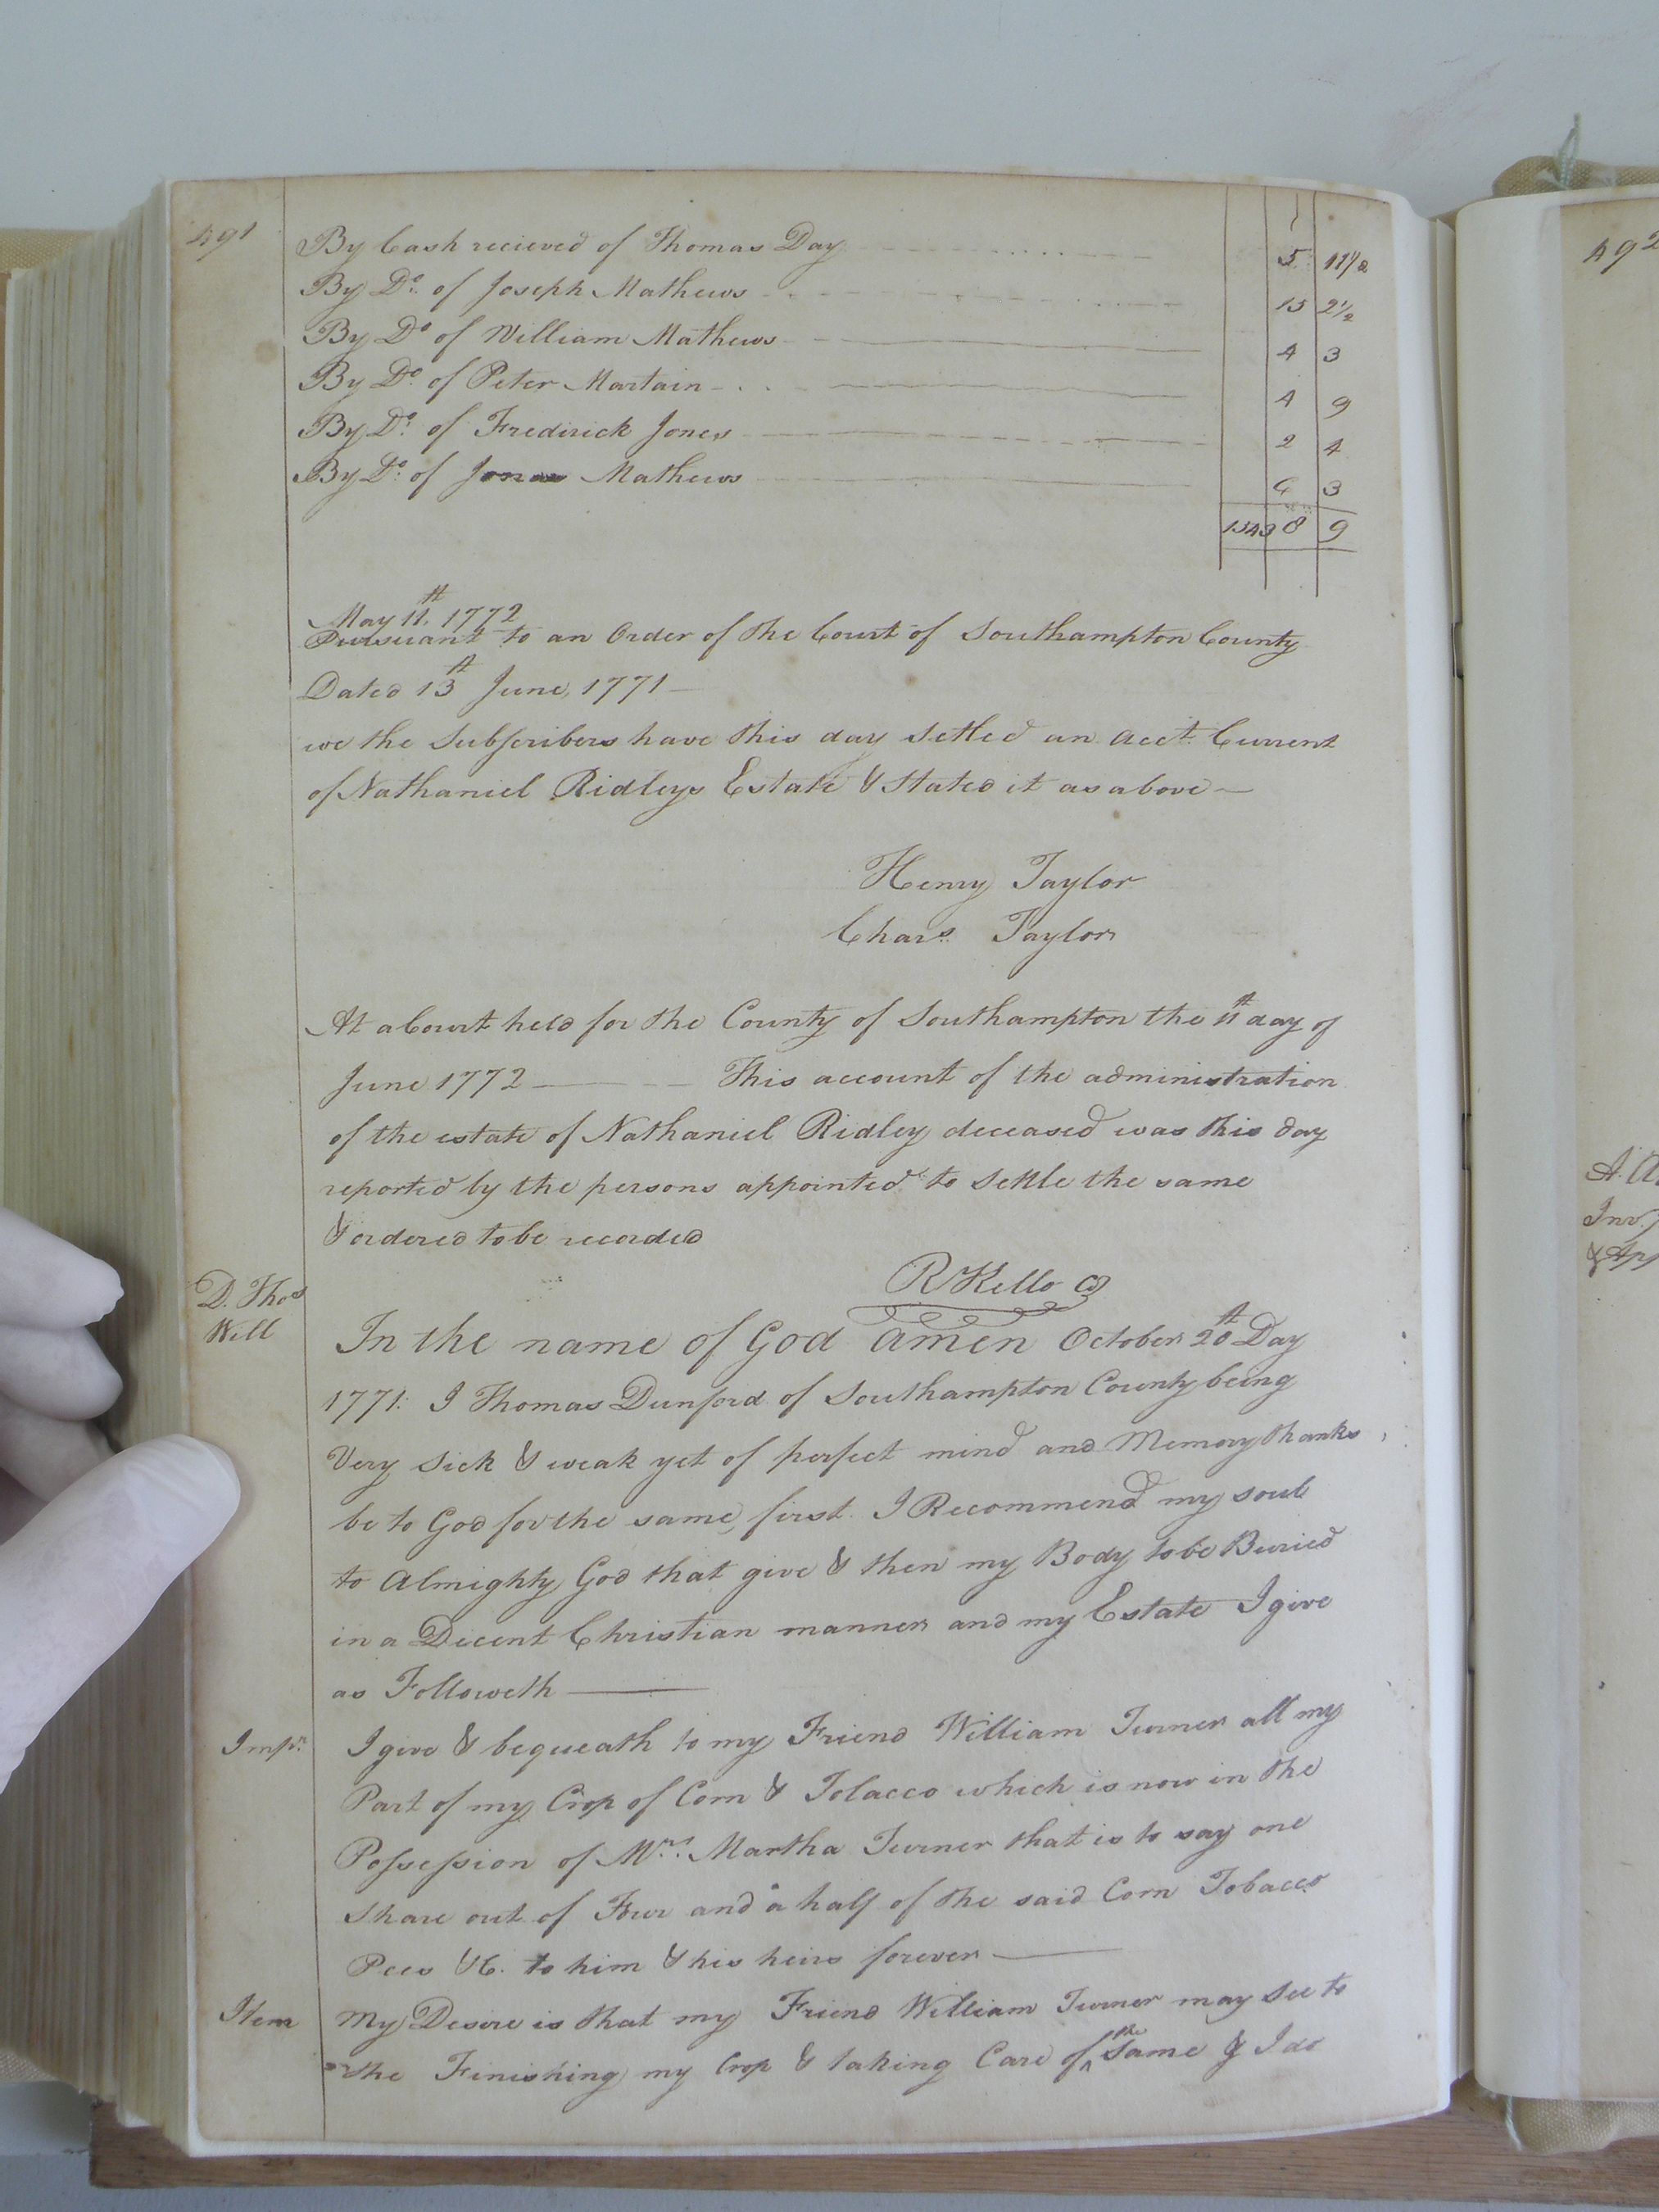 491
By Cash recieved of Thomas Day 5 11 1/2
By Do. of Joseph Mathews 15 2 1/2
By Do of William Mathews 4 3
By Do. of Peter Martain 4 9
By Do. of Fredirick Jones 2 4
By Do. of Jonas Mathews 6 3
1543 8 9
May 11th, 1772
Pursuant to an Order of the Court of Southampton County
Dated 13th June, 1771
we the Subscribers have this day Setled an acct. Current
of Nathaniel Ridleys Estate & Stated it as above
Henry Taylor
Chars. Taylor
At a Court held for the County of Southampton the 11th day of
June 1772 This account of the administration
of the estate of Nathaniel Ridley deceased was this day
reported by the persons appointed to Settle the same
& ordered to be recorded
R Kello
D. Thos
Will
In the name of God amen October 20th Day
1771: I Thomas Dunford of Southampton County being
Very Sick & weak yet of perfect mind and Memory thanks
be to God for the same, first I Recommend my soul
to Almighty God that give & then my Body to be Buried
in a Decent Christian manner and my Estate I give
as Followeth
Imps. I give & bequeath to my Friend William Turner all my
Part of my Crop of Corn & Tobacco which is now in the
Possession of Mrs. Martha Turner that is to say one
Share out of Four and a half of the said Corn Tobacco
Pees &C. to him & his heirs forever
Item My Desire is that my Friend William Turner may See to
the Finishing my Crop & taking Care of the Same & I do
492
Inv.